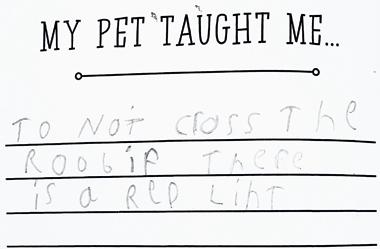 MY PET TAUGHT ME...
To Not Cross The
Roob if There
is a Rep Liht